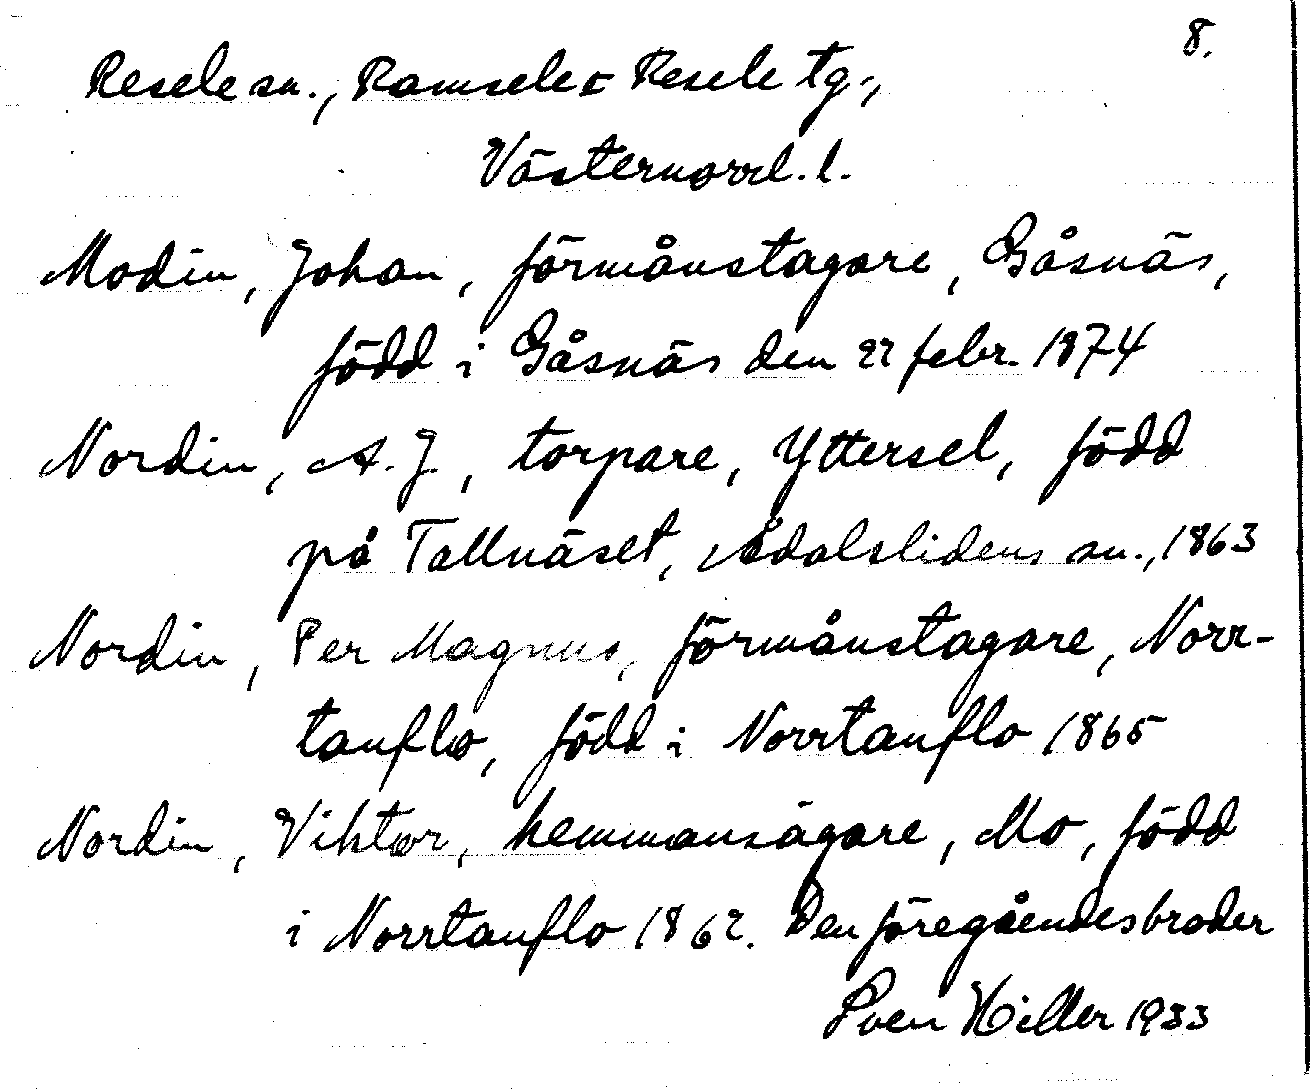 8.
Resele sn., Ramsele o Resele tg.,
Västernorrl. l.
Modin, Johan, förmånstagare, Gåsnäs,
född i Gåsnäs den 22 febr. 1874
Nordin, A. J., torpare, Yttersel, född
på Tallnäset, Ådalslidens sn., 1863
Nordin, Per Magnus, förmånstagare, Norr-
tanflo, född i Norrtanflo 1865
Nordin, Viktor, hemmansägare, Mo, född
i Norrtanflo 1862. Den föregåendes broder
Sven Hiller 1933